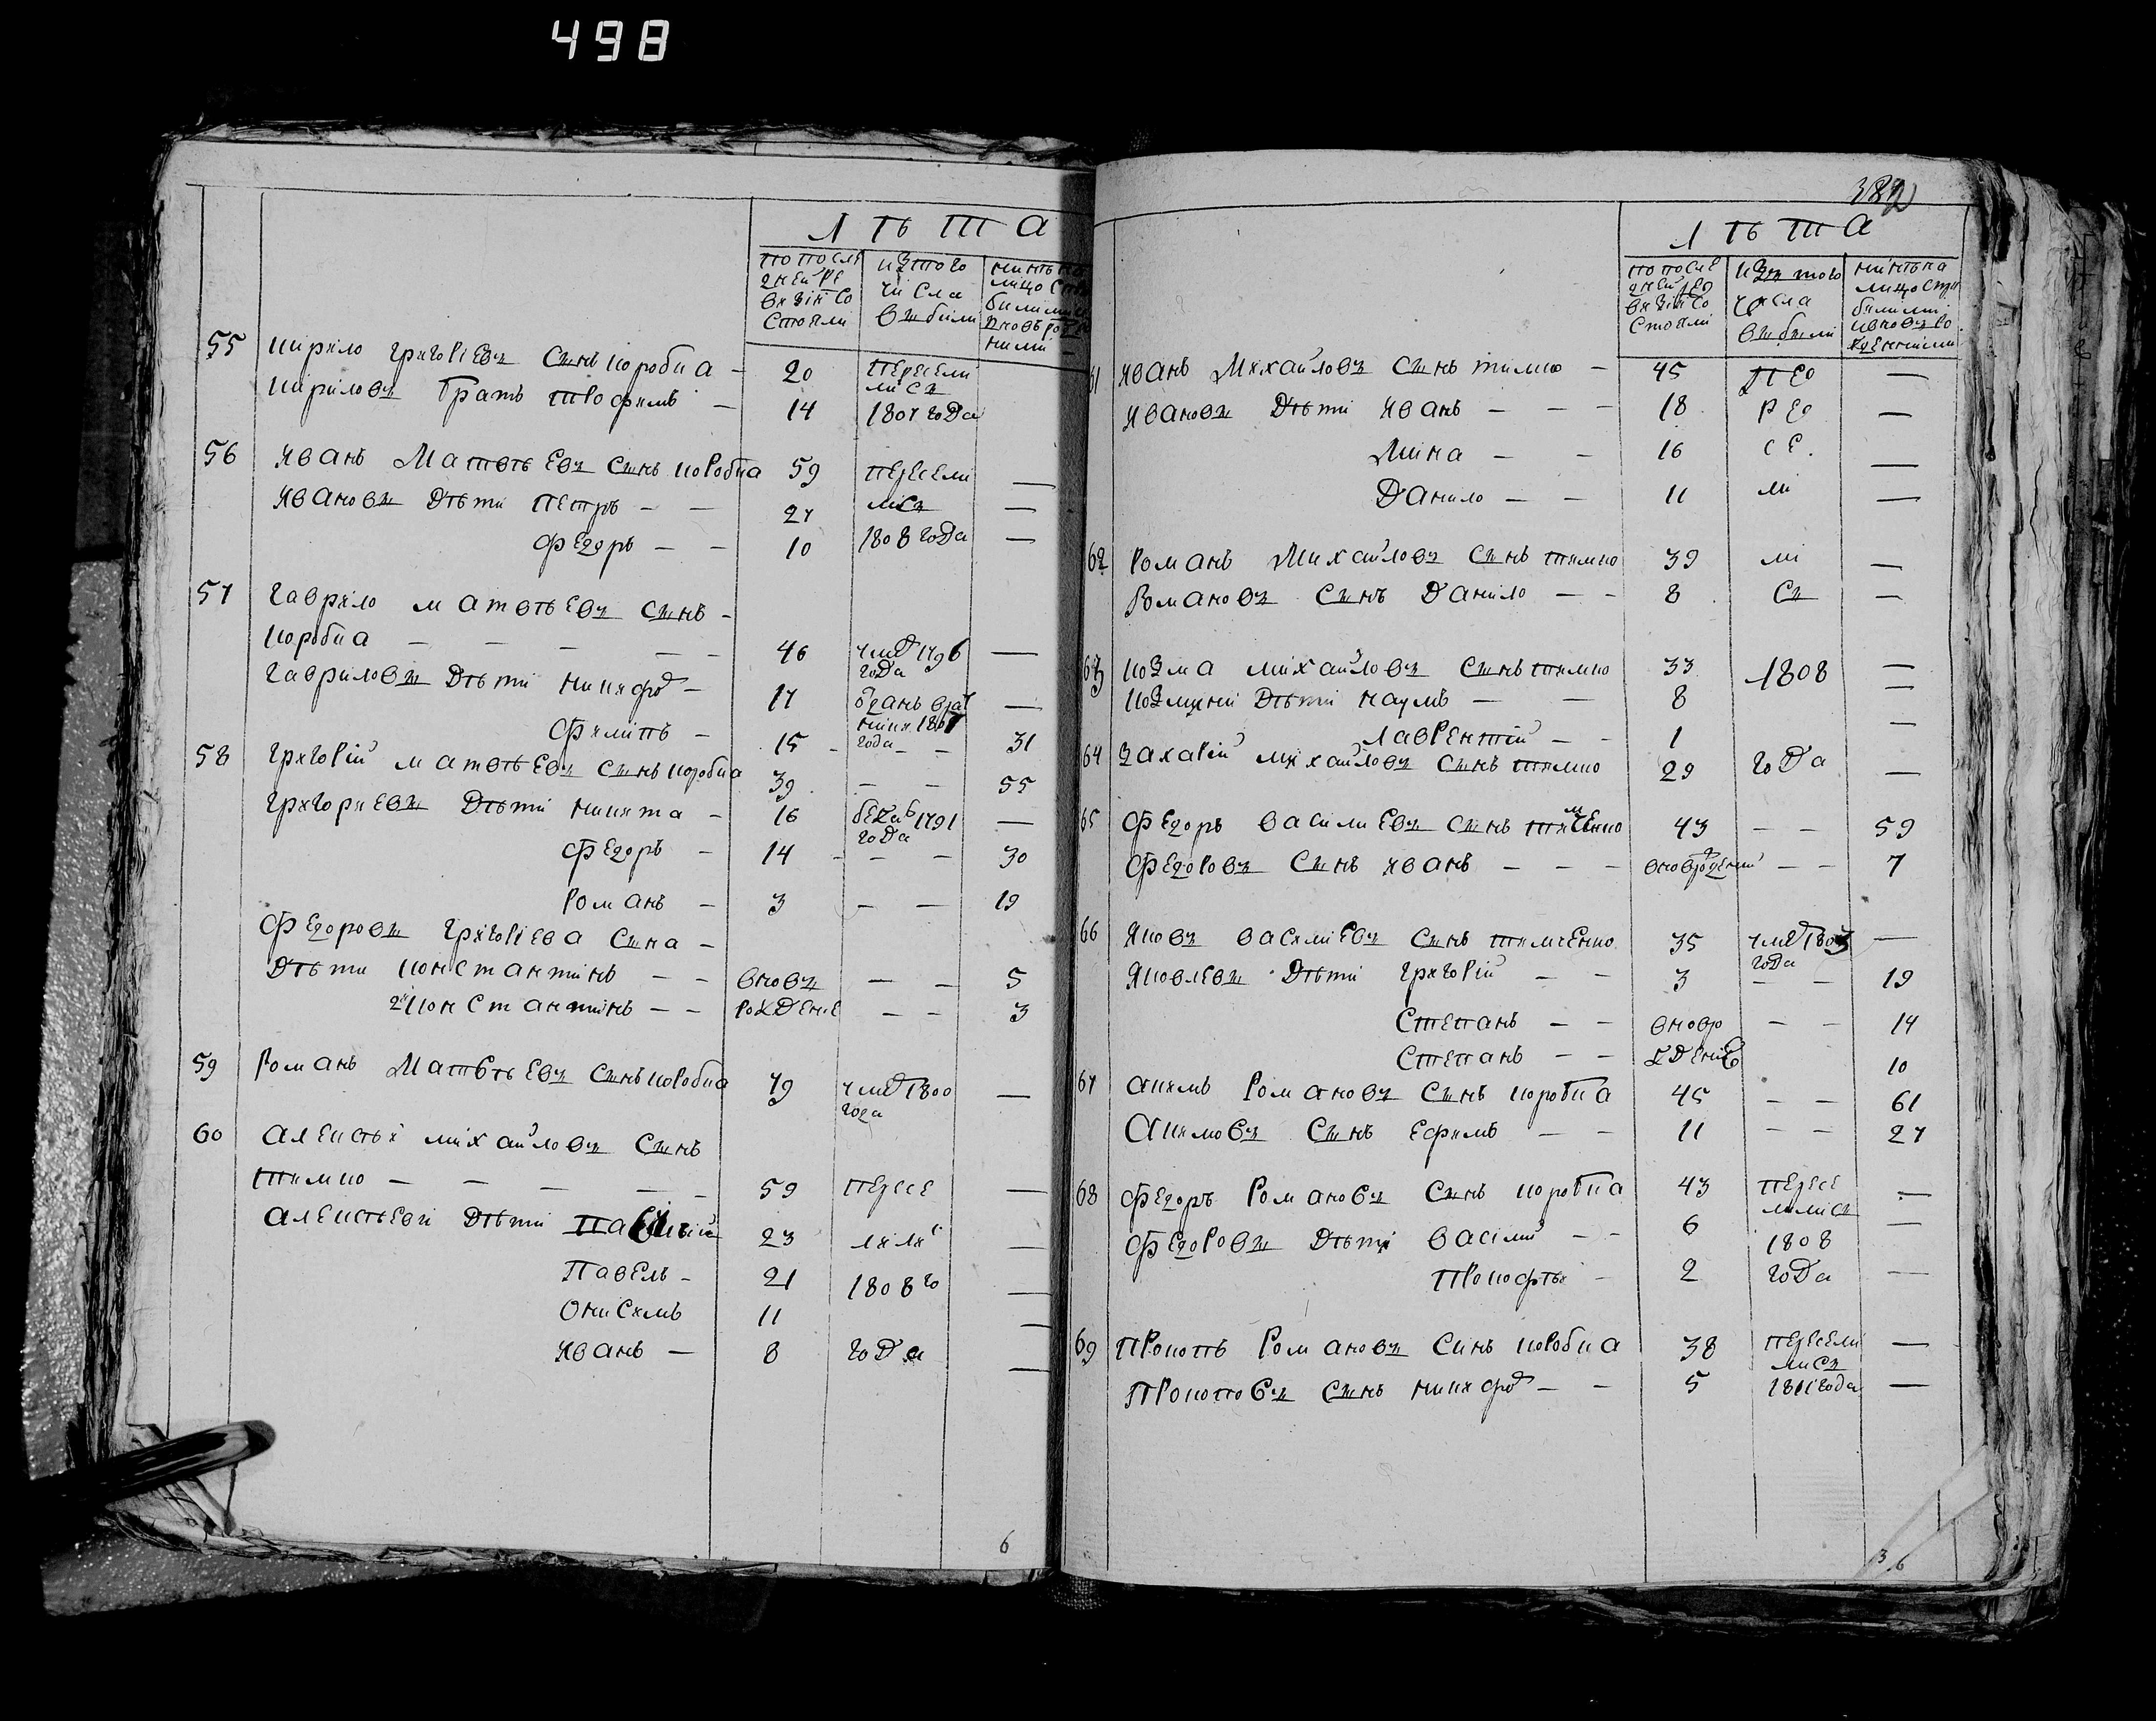 498
Лѣта
попослѣ
дней ре
визіи со
стояли
изтого
числа
выбыли
55 Кирило Григоріевъ сынъ Коробка — 20 пересели
лись
Кириловъ братъ Трофимъ — 14 1807 года
56 Иванъ Матвѣевъ сынъ Коробка 59 пересели —
лись
Ивановы дѣти Петръ — — 27 —
Федоръ — — 10 1808 года —
57 Гаврило Матвѣевъ сынъ —
Коробка — — — — — 46 умер 1796 —
года
Гавриловы дѣти Никифор — 17 —
Филипъ — 15 — — — 31
58 Григорій Матвѣевъ сынъ Коробка 39 — — 55
Григориевы дѣти Никита — 16 1791 —
года
Федоръ — 14 — — — 30
Романъ — 3 — — 19
Федоровы Григоріева сына —
Дѣти Константинъ — — вновъ — — 5
2й Константинъ — — рождение — — 3
59 Романъ Матвѣевъ сынъ Коробка 79 умер 1800 —
года
60 Алексѣй Михайловъ сынъ
Тимко — — — — — 59 пересе —
Алексѣеви дѣти 23 лили —
Павелъ — 21 1808 го —
Онисимъ 11 —
Иванъ — 8 года —
6
382
Лѣта
попослѣ
дней ре
визіи со
стояли
изъ того
числа
выбыли
нынѣ на
лицо
61 Иванъ Михайловъ сынъ Тимко — 45 пе —
Ивановы дѣти Иванъ — — — 18 ре —
Мина — — 16 се. —
Данило — — 11 ли —
62 Романъ Михайловъ сынъ Тимко 39 ли —
Романовъ сынъ Данило — — 8 съ —
63 Козма Михайловъ сынъ Тимко 33 1808 —
Козмини дѣти Наумъ — — 8 —
Лаврентий — — 1 —
64 Захарій Михайловъ сынъ Тимко 29 года —
65 Федоръ Васильевъ сынъ Тимченко 43 — — 59
Федоровъ сынъ Иванъ — — — вноврожденый — — 7
66 Яковъ Василіевъ сынъ Тимченко 35 умер 1803 —
года
Яковлевы дѣти Григорій — — 3 — — 19
Степанъ — — вновро — — 14
Степанъ — — ждение 10
67 Акимъ Романовъ сынъ Коробка 45 — — 61
Акимовъ сынъ Ефимъ — — 11 — — 27
68 Федоръ Романовъ сынъ Коробка 43 пересе —
лились
Федоровы дѣти Василий — — 6 1808 —
Прокофѣй — 2 года —
69 Прокопъ Романовъ синъ Коробка 38 пересели —
лись
Прокоповъ сынъ Никифор — — 5 1811 года —
36